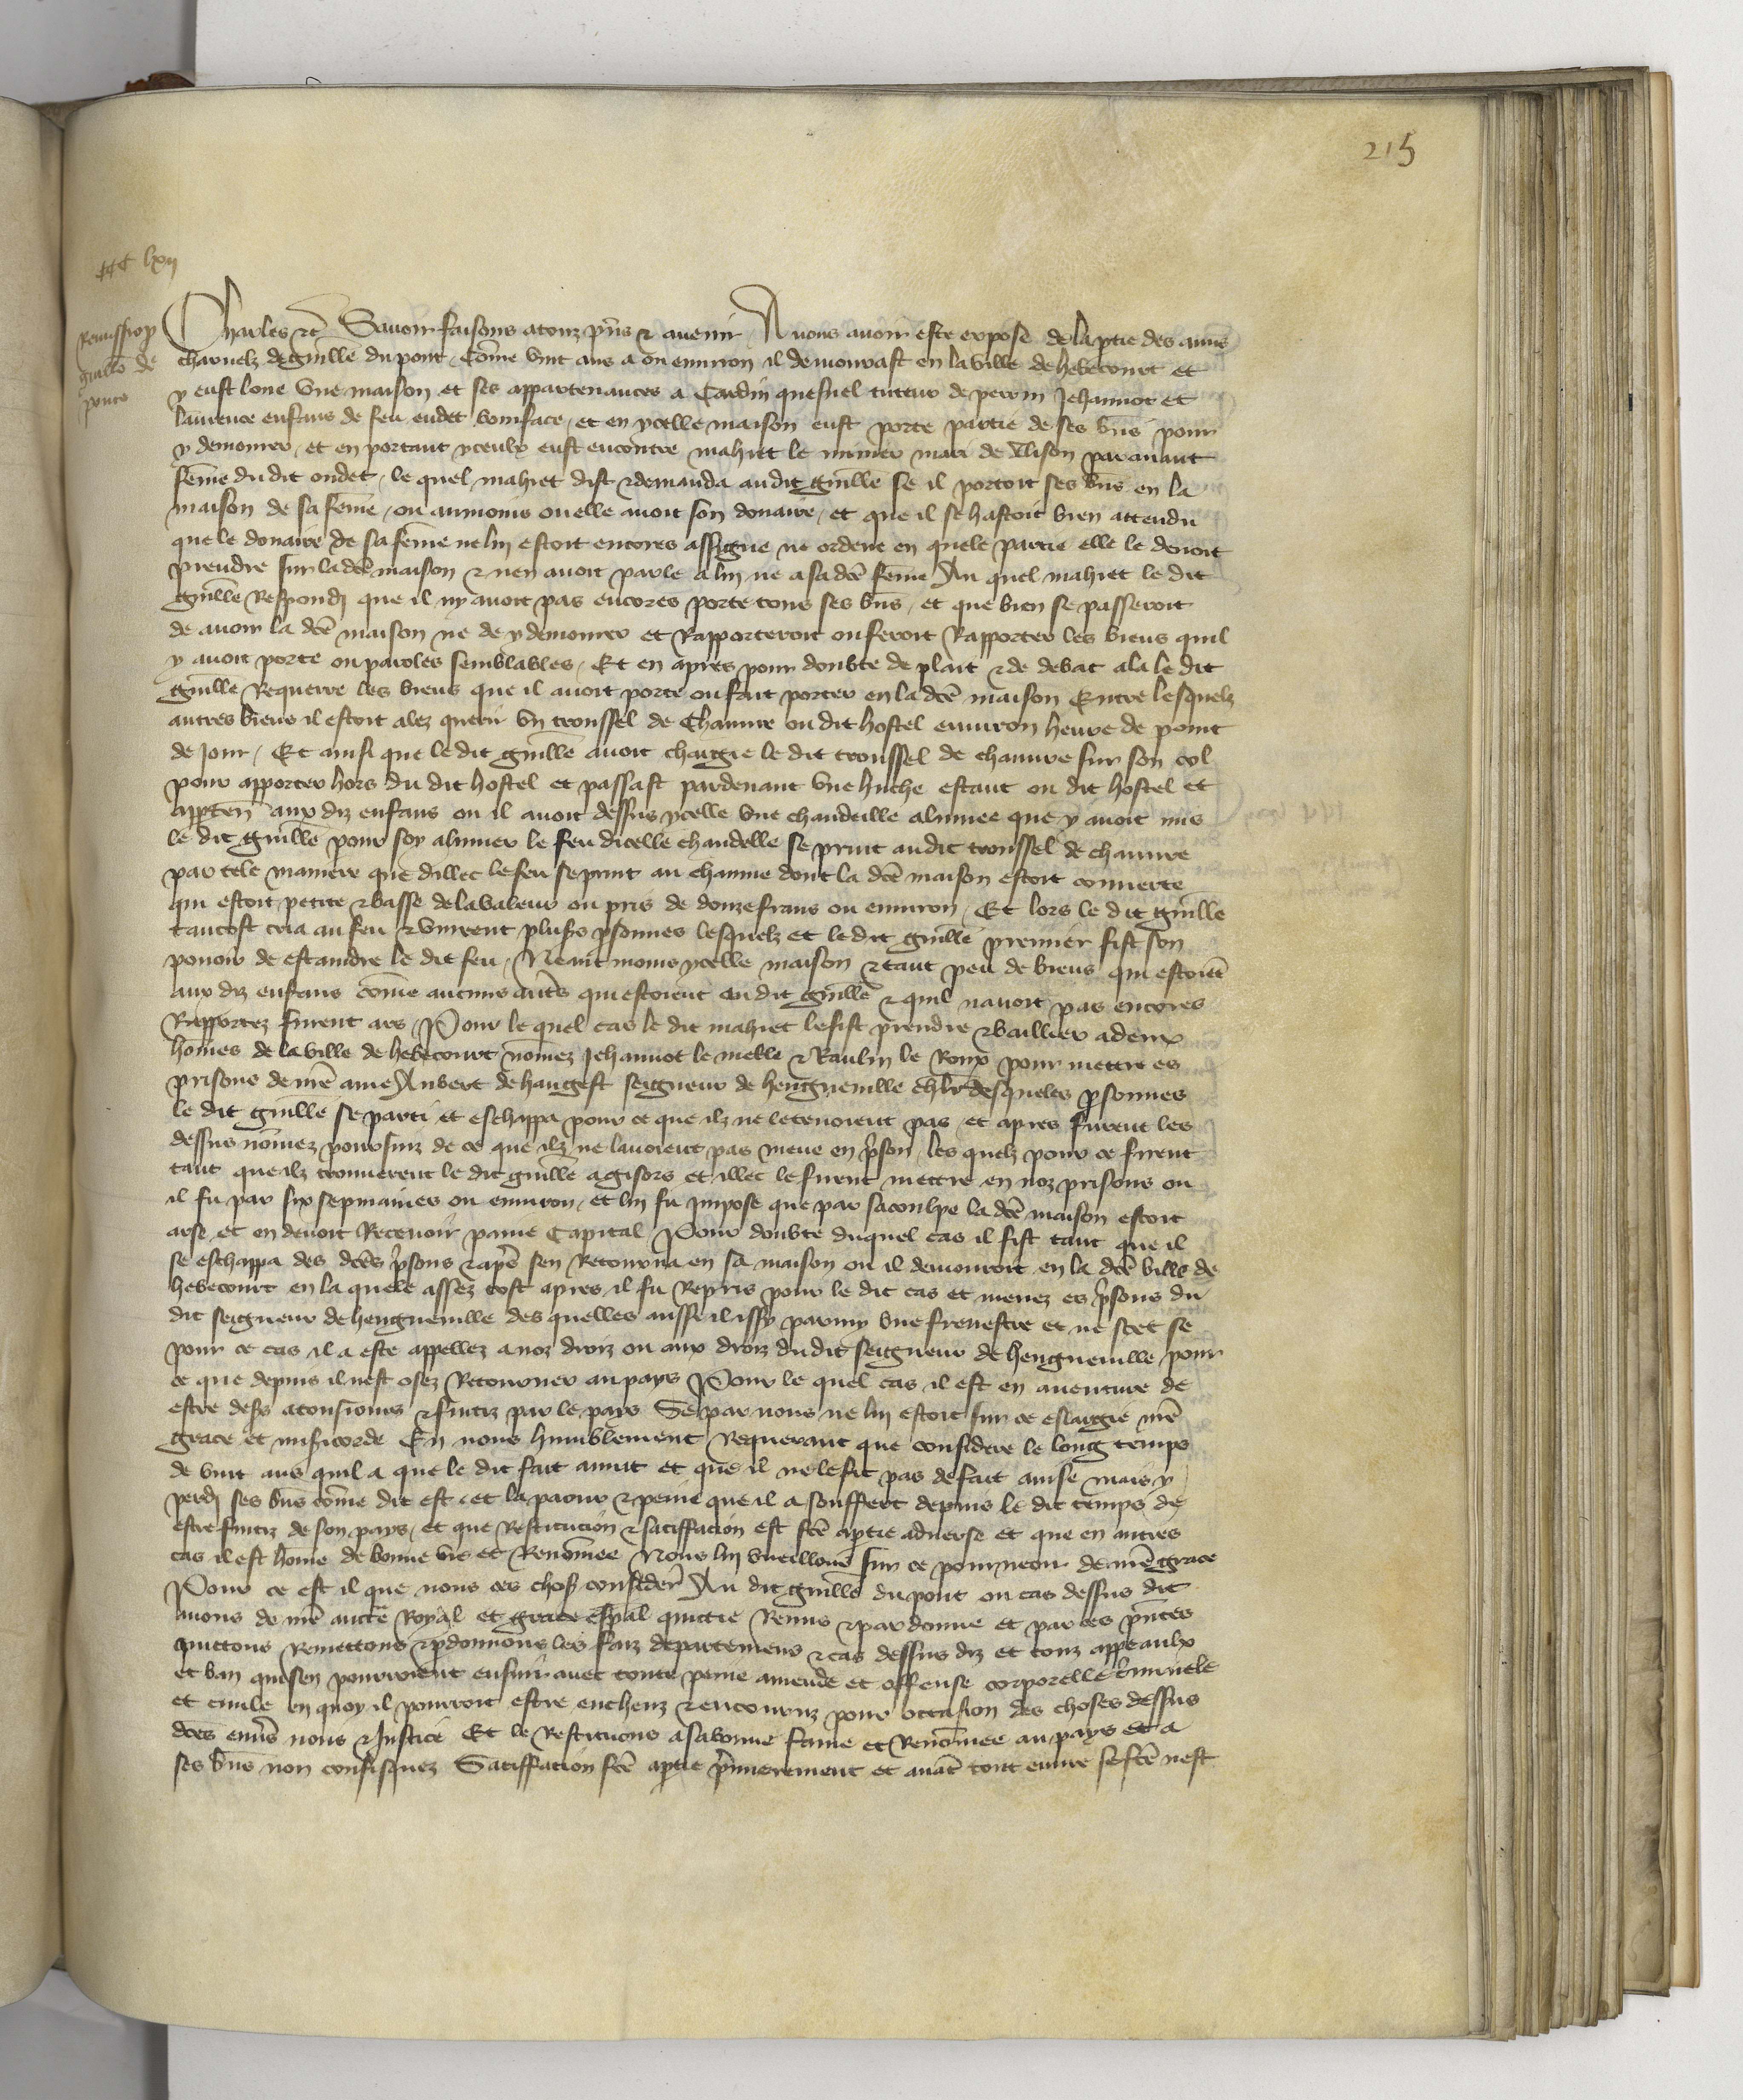 215
IIIc lxij
Remissio
guillo de
ponte
Charles etc Savoir faisons a touz pñs & avenir A nous avoir este expose de la ptie des amis
charnelz de guille du pont, Cõme vint ans a ou environ il demourast en la ville de hebecourt et
y eust loue une maison et ses appartenances a Cardin quesnel tuteur de perrin Jehannot et
laurence enfans de feu oudet boniface, et en ycelle maison eust porte partie de ses bñs pour
y demourer, et en portant yceulx eust encontre mahiet le mimer mari de Alison par avant
fẽme du dit oudet, le quel mahiet dist & demanda au dit guille se il portoit ses bñs en la
maison de sa fẽme, ou aumoins ou elle avoit son douaire, et que il se hastoit bien attendu
que le douaire de sa fẽme ne luy estoit encores assigne ne ordene en quele partie elle le devoit
prendre sur la dcẽ maison & nen avoit parle a luy ne a sa dcẽ fẽme Au quel mahiet le dit
guille Respondi que il ny avoit pas encores porte tous ses bñs, et que bien se passeroit
de avoir la dcẽ maison ne de y demourer et Rapporteroit ou feroit Rapporter les biens quil
y avoit porte ou paroles semblables, Et en apres pour doubte de plait & de debat ala le dit
guille Requerre les biens que il avoit porte ou fait porter en la dcẽ maison Entre lesquelz
autres biens il estoit alez querir un troussel de Chanvre ou dit hostel environ heure de point
de Jour, Et ainsi que le dit guille avoit chargie le dit troussel de chanvre sur son col
pour apporter hors du dit hostel et passast pardevant une huche estant ou dit hostel et
apptẽn aux diz enfans ou il avoit dessus ycelle une chandeille alumee que y avoit mis
le dit guille pour soy alumer le feu dicelle chandelle se print au dit troussel de chanvre
par tele maniere que dillec le feu se print au chaume dont la dcẽ maison estoit couverte
qui estoit petite & basse de la valeur ou pris de douze frans ou environ, Et lors le dit guille
tantost cria au feu & vindrent plusrs psonnes lesquelz et le dit guille premier fist son
povoir de estaindre le dit feu, Neantmoins ycelle maison & tant peu de biens qui estoiẽt
aux diz enfans cõme aucuns autẽs qui estoient au dit guille & quil navoit pas encores
Rapportez furent ars, Pour le quel cas le dit mahiet le fist prendre & baillier a deux
hõmes de la ville de hebecourt nõmez Jehannot le melle & Raulin le Roux pour mettre es
prisons de nrẽ ame Aubert de hangest seigneur de hengueville chlr desqueles psonnes
le dit guille se parti et eschappa pour ce que ilz ne le tenoient pas et apres furent les
dessus nõmez poursuiz de ce que ilz ne lavoient pas mene en pson, les quelz pour ce firent
tant que ilz trouverent le dit guille a gisors et illec le firent mettre en noz prisons ou
il fu par six sepmaines ou environ, et luy fu Impose que par sa coulpe la dcẽ maison estoit
arse et en devoit Recevoir paine Capital Pour doubte duquel cas il fist tant que il
se eschappa des dcẽs psons & apẽs sen Retourna en sa maison ou il demouroit en la dcẽ ville de
hebecourt en la quele assez tost apres il fu Repris pour le dit cas et menez es psons du
dit seigneur de hengueville des quelles aussi il issy parmy une frenestre et ne scet se
pour ce cas il a este appellez a noz droiz ou aux droiz du dit seigneur de hengueville pour
ce que depuis il nest osez Retourner au pays Pour le quel cas il est en aventure de
estre desers a tousjours & fuitiz par le pays Se par nous ne luy estoit sur ce eslargie nrẽ
grace et misicorde En nous humblement Requerant que considere le long temps
de vint ans quil a que le dit fait avint et que il ne le fit pas de fait avise mais y
perdi ses bñs cõme dit est, et la paour & peine que il a souffert depuis le dit temps de
estre fuitiz de son pays, et que Restitucion & satiffacion est fcẽ a ptie adverse et que en autres
cas il est hõme de bonne vie et Renõmee Nous luy vueillons sur ce pourveoir de nrẽ grace
Pour ce est il que nous ces choses considerẽ Au dit guille du pont ou cas dessus dit
avons de nrẽ auctẽ Royal et grace espãl quictie Remis & pardonne et par ces pñtes
quittons Remettons & pdonnons les faiz departemens & cas dessus diz et touz appeaulx
et ban quisen pourroient ensuir avec toute peine amende et offense corporelle criminele
et civile en quoy il pourroit estre encheuz & encouruz pour occasion des choses dessus
dcẽs envrs nous & Justice Et le Restituons a sa bonne fame et Renõmee au pays et a
ses bñs non confisquez Satiffacion fcẽ a ptie prẽmierement et avãt tout euvre se fcẽ nest